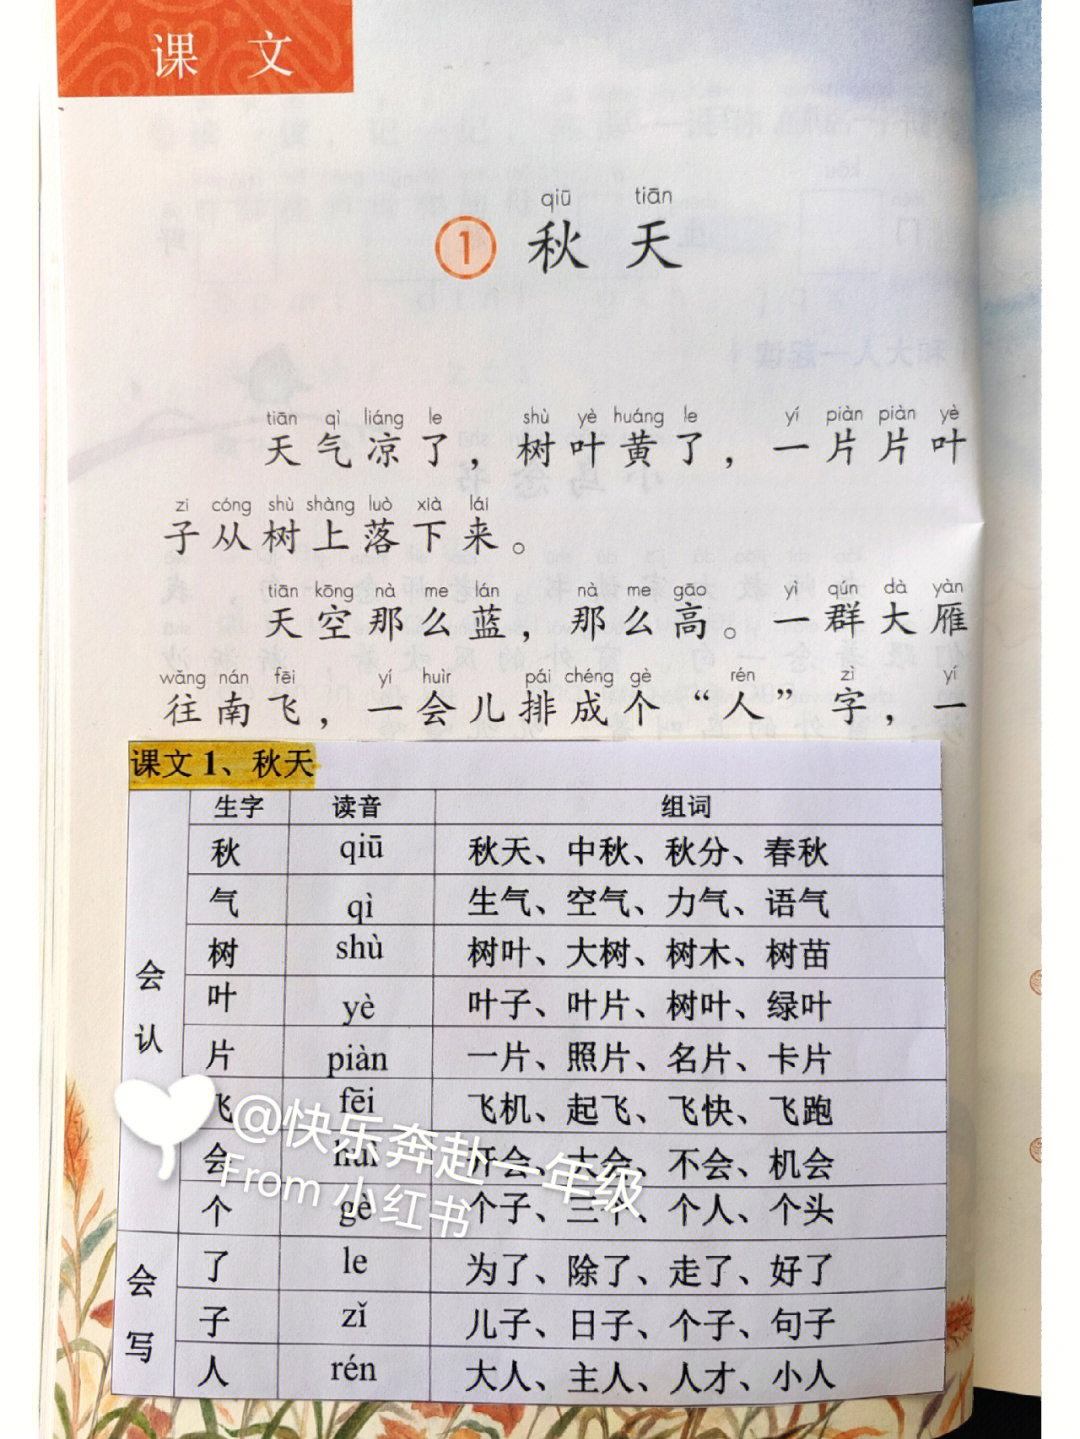 课文
qiū tiān
1 秋天
tiān qì liáng le shù yè huáng le yí piàn piàn yè
天气凉了，树叶黄了，一片片叶
zi cóng shù shàng luò xià lái
子从树上落下来。
tiān kōng nà me lán nà me gāo yì qún dà yàn
天空那么蓝，那么高。一群大雁
wǎng nán fēi yí huìr pái chéng gè rén zì yí
往南飞，一会儿排成个“人”字，一
课文 1、秋天
生字 读音 组词
会认
秋 qiū 秋天、中秋、秋分、春秋
气 qì 生气、空气、力气、语气
树 shù 树叶、大树、树木、树苗
叶 yè 叶子、叶片、树叶、绿叶
片 piàn 一片、照片、名片、卡片
飞 fēi 飞机、起飞、飞快、飞跑
会 huì 开会、大会、不会、机会
个 gè 个子、三个、个人、个头
会写
了 le 为了、除了、走了、好了
子 zǐ 儿子、日子、个子、句子
人 rén 大人、主人、人才、小人
@快乐奔赴一年级
From 小红书